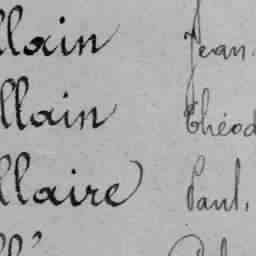 llain Jean.
llain Théod
llaire Paul.